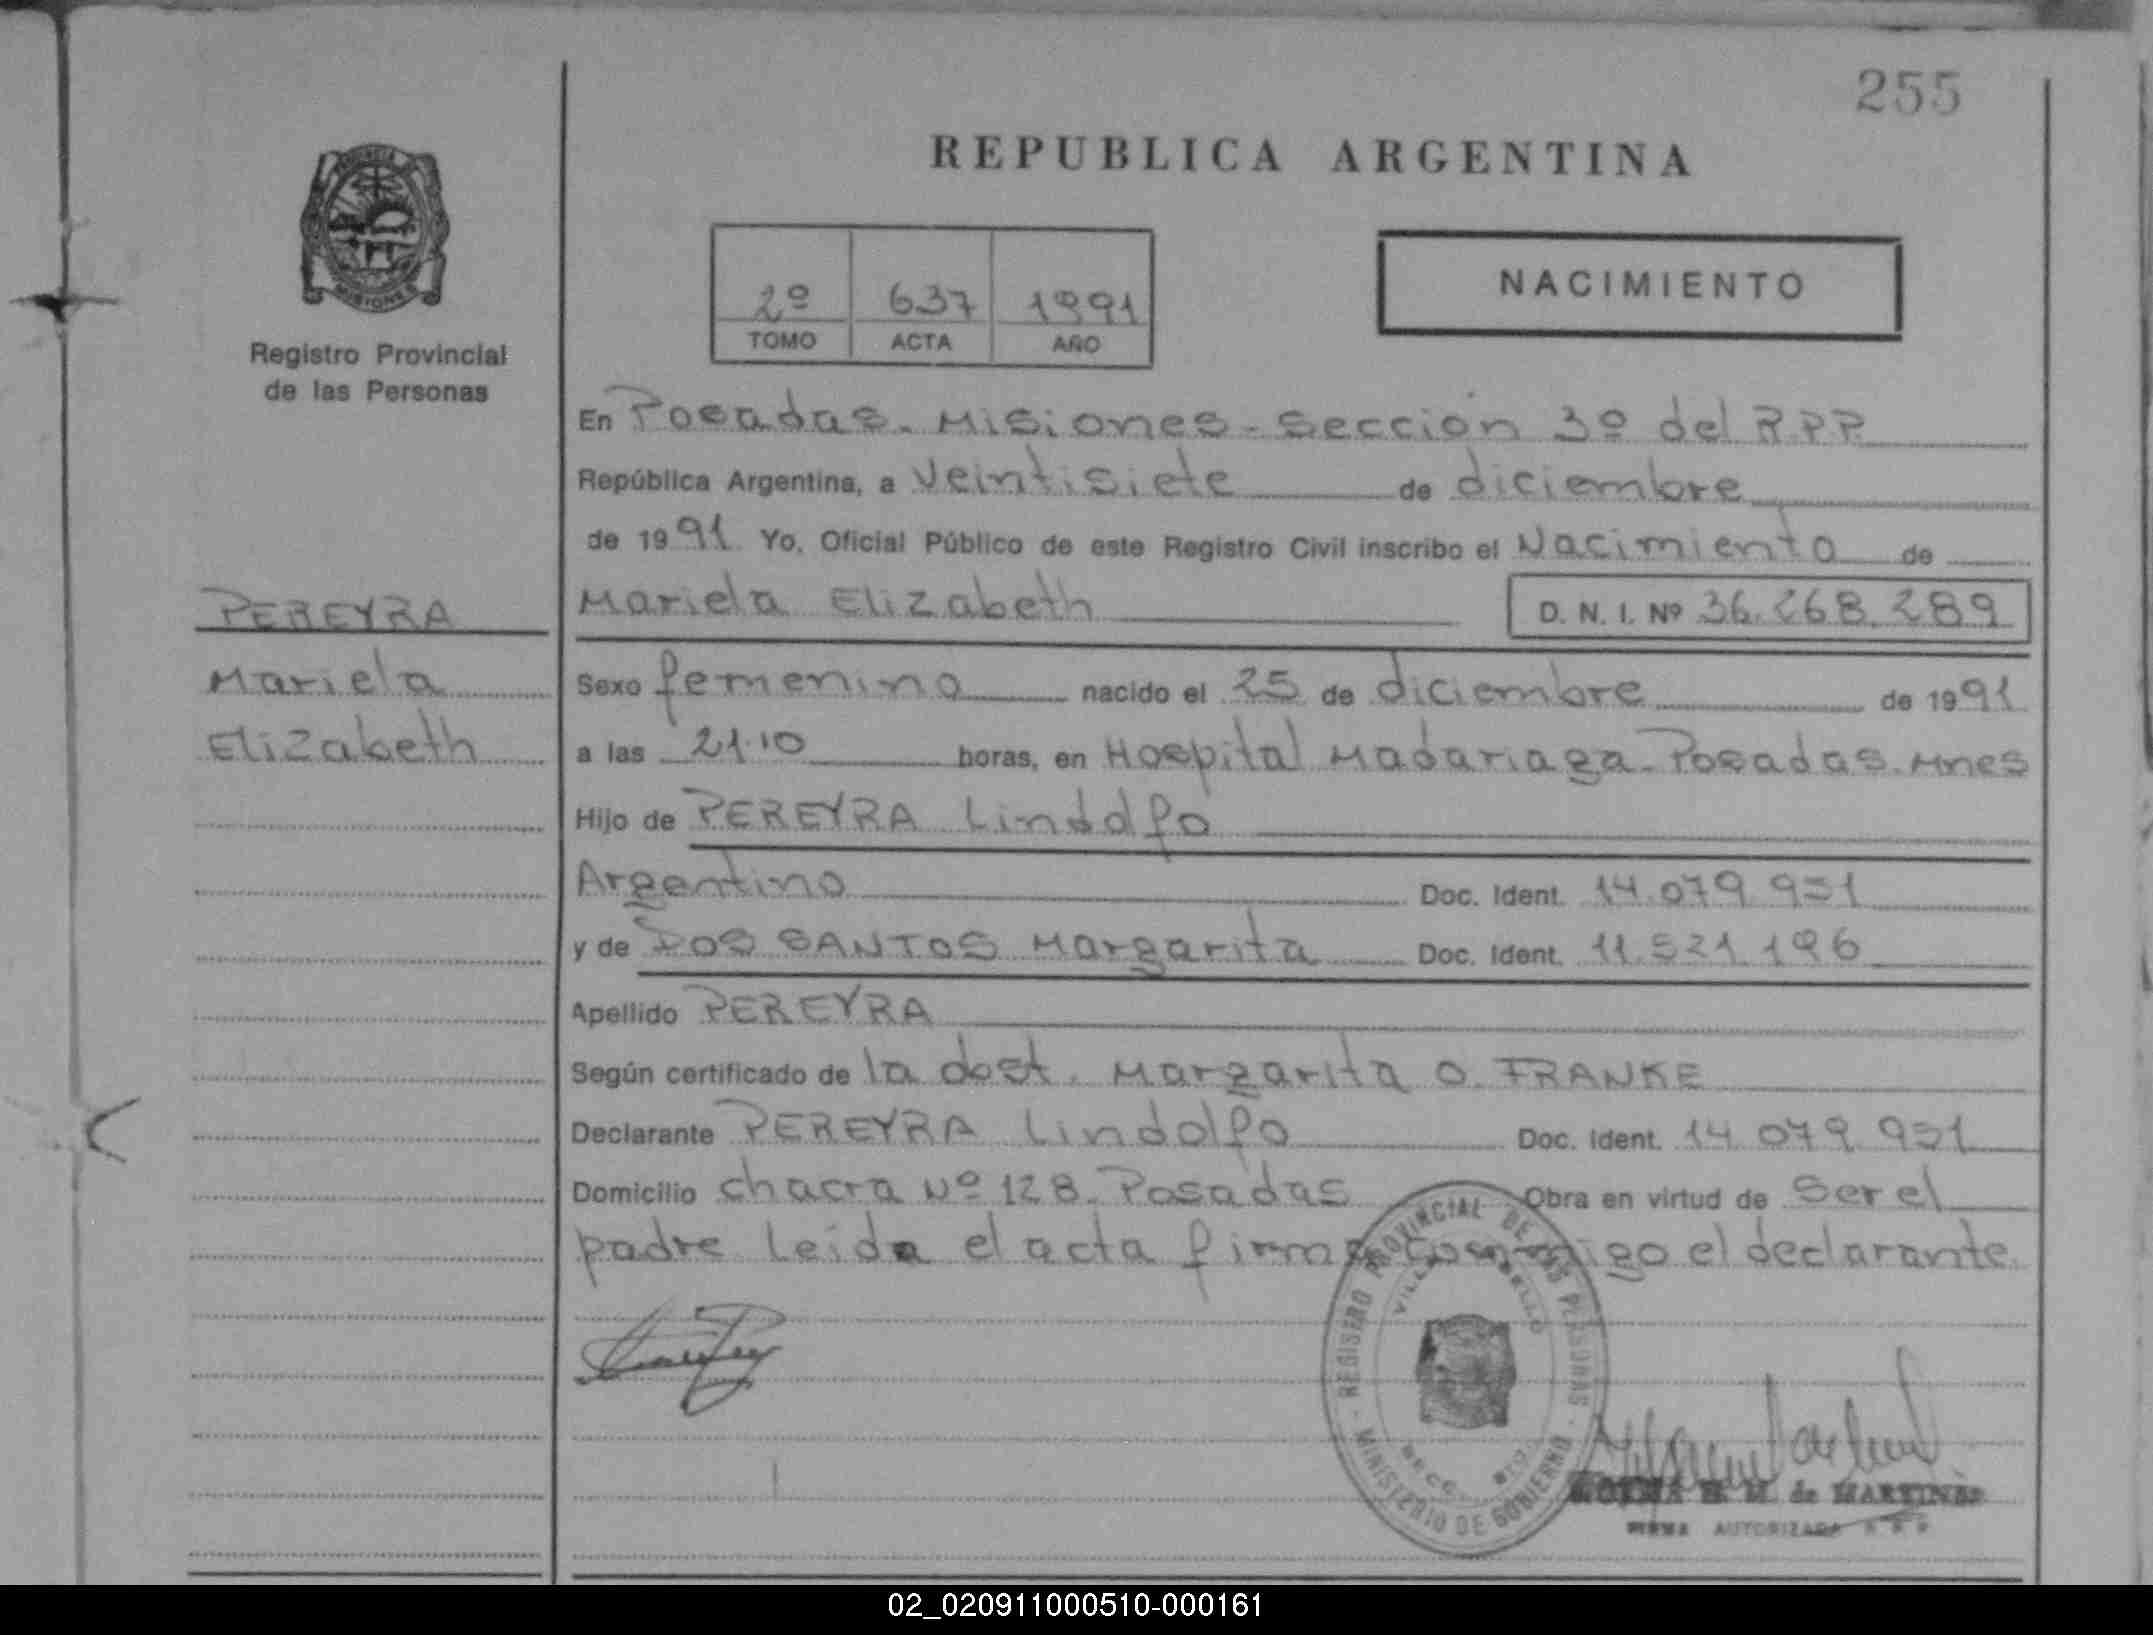 255
REPUBLICA ARGENTINA
2º 637 1991
TOMO ACTA AÑO
NACIMIENTO
MISIONES
Registro Provincial
de las Personas
En Posadas. Misiones - Sección 3º del R.P.P.
República Argentina, a veintisiete de diciembre
de 1991 Yo, Oficial Público de este Registro Civil inscribo el Nacimiento de
PEREYRA
Mariela Elizabeth D. N. I. Nº 36.268.289
Mariela
Sexo femenino nacido el 25 de diciembre de 1991
Elizabeth
a las 21.10 horas, en Hospital Madariaga - Posadas. Mnes
Hijo de PEREYRA Lindolfo
Argentino Doc. Ident. 14.079.951
y de DOS SANTOS Margarita Doc. Ident. 11.521.196
Apellido PEREYRA
Según certificado de la dost. Margarita O. FRANKE
Declarante PEREYRA Lindolfo Doc. Ident. 14.079.951
Domicilio chacra Nº 128. Posadas Obra en virtud de Ser el
padre Leida el acta firma conmigo el declarante.
REGISTRO PROVINCIAL DE LAS PERSONAS
MINISTERIO DE GOBIERNO
M. de MARTINES
FIRMA AUTORIZADA
02_020911000510-000161